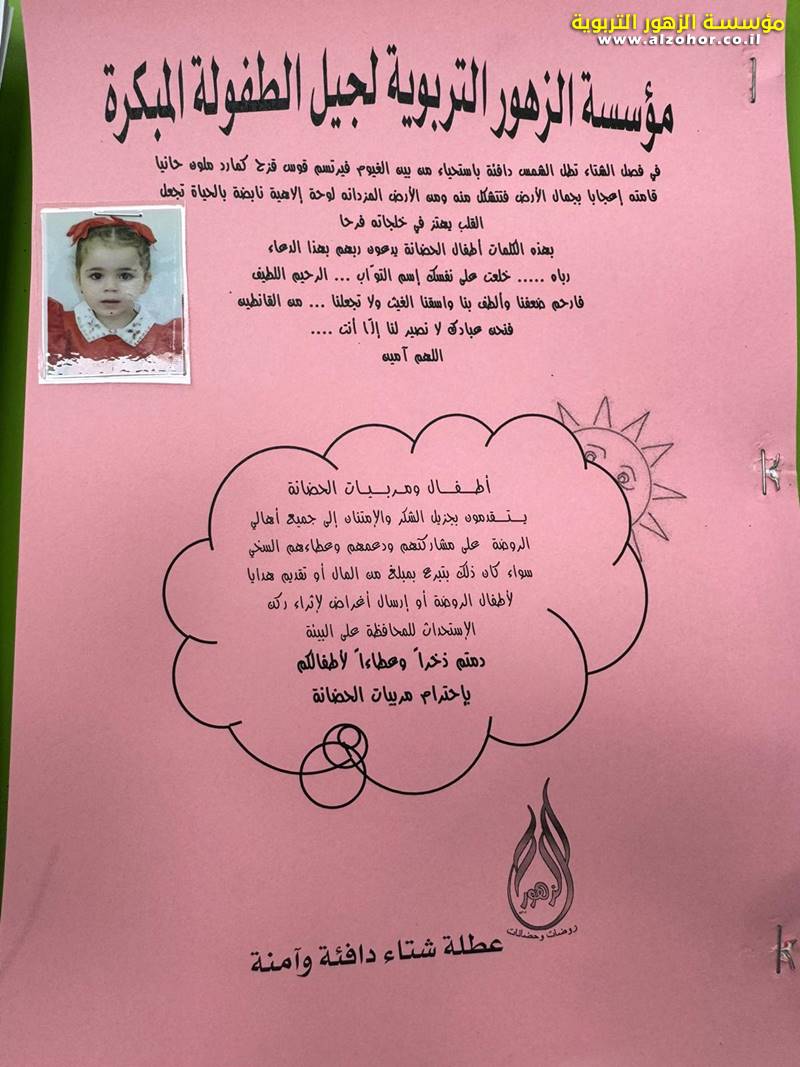 مؤسسة الزهور التربوية
www.alzohor.co.il
مؤسسة الزهور التربوية لجيل الطفولة المبكرة
في فصل الشتاء تطل الشمس دافئة باستحياء من بين الغيوم فيرتسم قوس قزح كمارد ملون حانيا
قامته إعجابا بجمال الأرض فتتشكل منه ومن الأرض المزدانه لوحة إلاهية نابضة بالحياة تجعل
القلب يهتز في خلجاته فرحا
بهذه الكلمات أطفال الحضانة يدعون ربهم بهذا الدعاء
رباه ..... خلعت على نفسك إسم التوّاب ... الرحيم اللطيف
فارحم ضعفنا وألطف بنا واسقنا الغيث ولا تجعلنا ... من القانطين
فنحن عبادك لا نصير لنا إلّا أنت ....
اللهم آمين
أطـفـال ومـربـيـات الحضانة
يـتـقدمون بجزيل الشكر والإمتنان إلى جميع أهالي
الروضة على مشاركتهم ودعمهم وعطاءهم السخي
سواء كان ذلك بتبرع بمبلغ من المال أو تقديم هدايا
لأطفال الروضة أو إرسال أغراض لإثراء ركن
الإستحداث للمحافظة على البيئة
دمتم ذخراً وعطاءاً لأطفالكم
بإحترام مربيات الحضانة
الزهور
روضات وحضانات
عطلة شتاء دافئة وآمنة